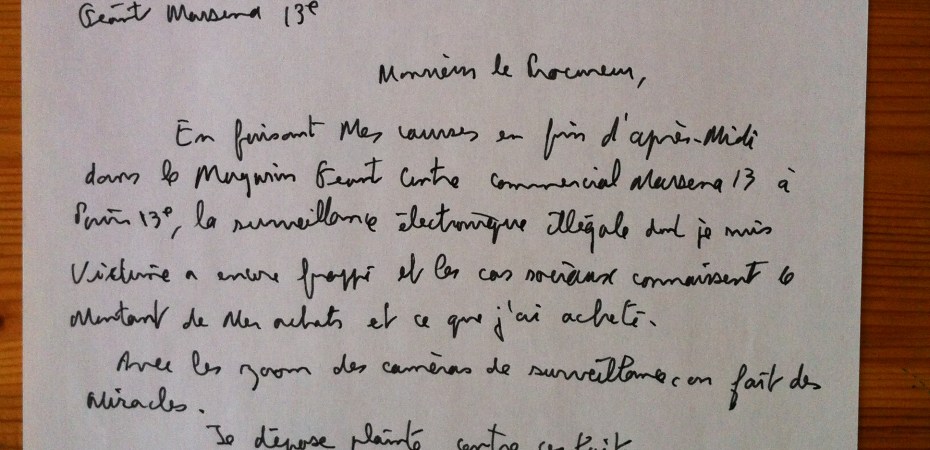 Géant Massena 13e
Monsieur le Procureur,
En faisant Mes courses en fin d'après-Midi
dans le Magasin Geant Centre commercial Massena 13 à
Paris 13e, la surveillance électronique illégale dont je suis
Victime a encore frappé et les cas sociaux connaissent le
Montant de Mes achats et ce que j'ai acheté.
Avec les zoom des caméras de surveillance, on fait des
Miracles.
Je dépose plainte contre ce fait